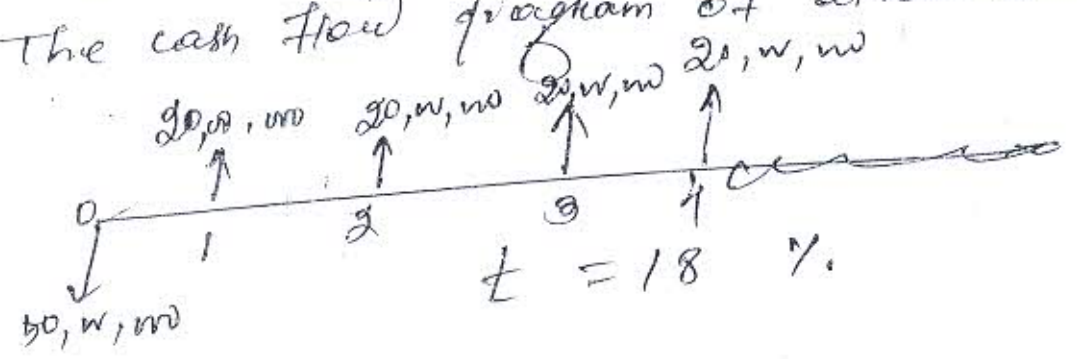 The cash flow diagram of
20,00,000 20,00,000 20,00,000 20,00,000
0 1 2 3 4
50,00,000
i = 18 %.